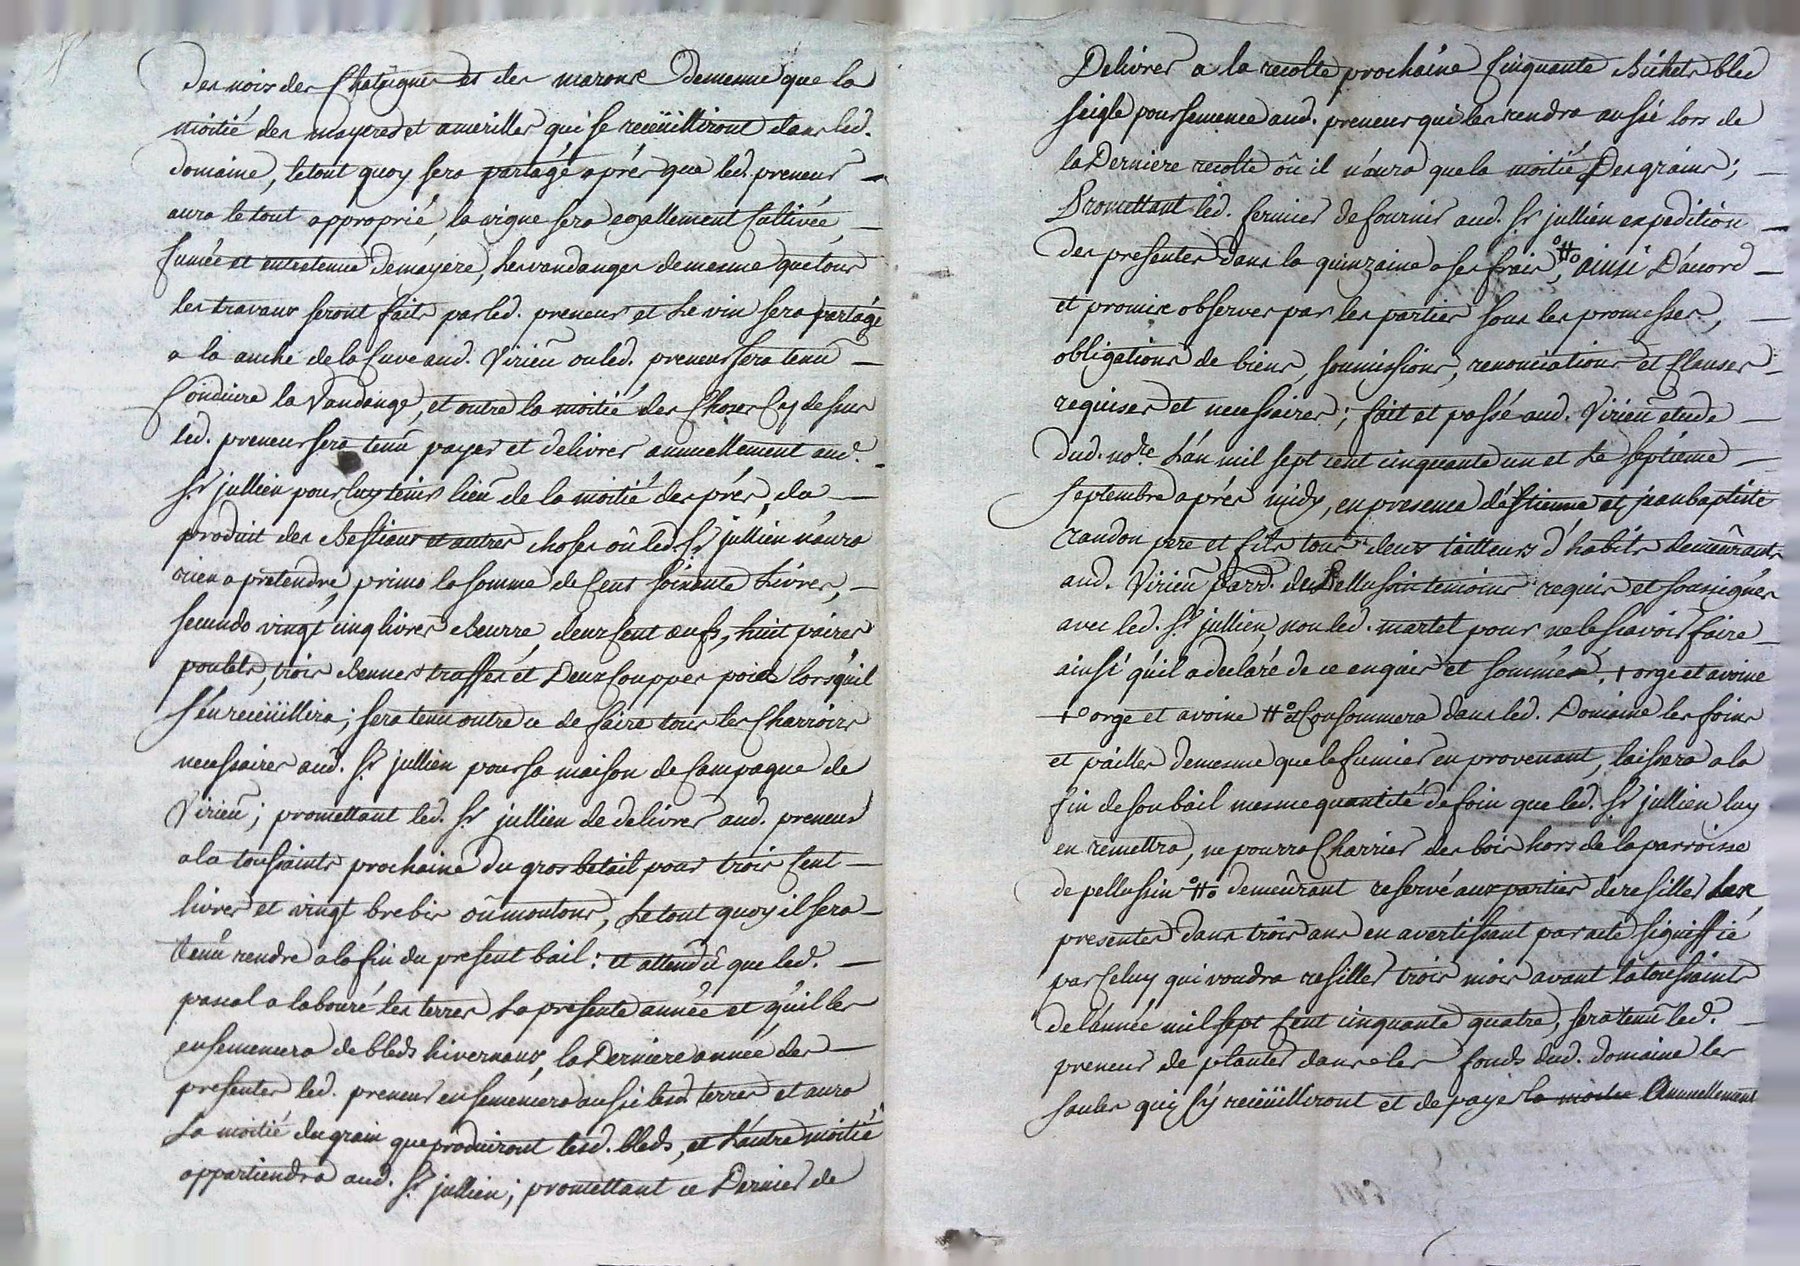 des nois des Chataignes et des marons Demesme que la
moitié des mayeres et amerilles qui se recëuilliront dans led.
domaine, letout quoy sera partagé aprés que led. preneur
aura le tout approprié, la vigne sera egallement Cultivée,
fumée et entretenue demayere, Les vandanges demesme que tous
les travaux seront faits par led. preneur et Le vin sera partagé
a la anche de la Cuve aud. Virieu ou led. preneur sera tenu
Conduire la Vandange, et outre la moitié des Choses Cy dessus
led. preneur sera tenu payer et delivrer annuellement aud.
Sr. jullien pour luy tenir lieu de la moitié des prés, du
produit des Bestiaux et autres choses où led. Sr. jullien n'aura
rien a pretendre, primo la somme de Cent soixante Livres,
secundo vingt cinq livres Beurre, deux Cent oeufs, huit paires
poulets, trois Bennes truffes et Deux Couppes pois lorsqu'il
s'en recëuillira; sera tenu outre ce de faire tous les Charrois
necessaires aud. Sr. jullien pour sa maison de Campagne de
Virieu; promettant led. Sr. jullien de delivrer aud. preneur
a la toussaints prochaine du gros betail pour trois Cent
livres et vingt brebis où moutons, Le tout quoy il sera
tenu rendre a la fin du present bail: et attendû que led.
pascal a labouré les terres La presente année et qu'il les
ensemencera de bleds hivernaux, la Derniere année des
presentes led. preneur ensemencera aussi lesd. terres et aura
La moitié du grain que produiront lesd. bleds, et L'autre moitié
appartiendra aud. Sr. jullien; promettant ce Dernier de
Delivrer a la recolte prochaine Cinquante Bichets bled
seigle pour semence aud. preneur qui les rendra aussi lors de
la Derniere recolte où il n'aura que la moitié Des grains;
Promettant led. fermier de fournir aud. Sr. jullien expedition
des presentes dans la quinzaine a ses frais, ainsi D'acord
et promis observer par les parties sous les promesses,
obligations de biens, soumissions, renonciations et Clauses
requises et necessaires; fait et passé aud. Virieu etude
dud. nore. L'an mil sept cent cinquante un et Le septième
septembre aprés midy, en presence d'éstienne et jean baptiste
Crandon pere et fils tous deux tailleurs d'habits demeûrants
aud. Virieu parr. de Pellussin temoins requis et soussignés
avec led. Sr. jullien non led. martel pour ne le sçavoir faire
ainsi qu'il a declaré de ce enquis et sommé. + orge et avoine
+o orge et avoine #o et Consommera dans led. Domaine les foins
et pailles demesme que le fumier en provenant, laissera a la
fin de son bail mesme quantité de foin que led. Sr. jullien luy
en remettra, ne pourra Charrier des bois hors de la parroisse
de pellussin o#o demeûrant reservé aux parties de resiller Les
presentes dans trois ans en avertissant par acte signiffié
par Celuy qui voudra resiller trois mois avant la toussaints
de l'année mil sept Cent cinquante quatre, sera tenu led.
preneur de planter dans les fonds dud. domaine les
saules qui s'y recëuilliront et de payer la moitié Annuellement